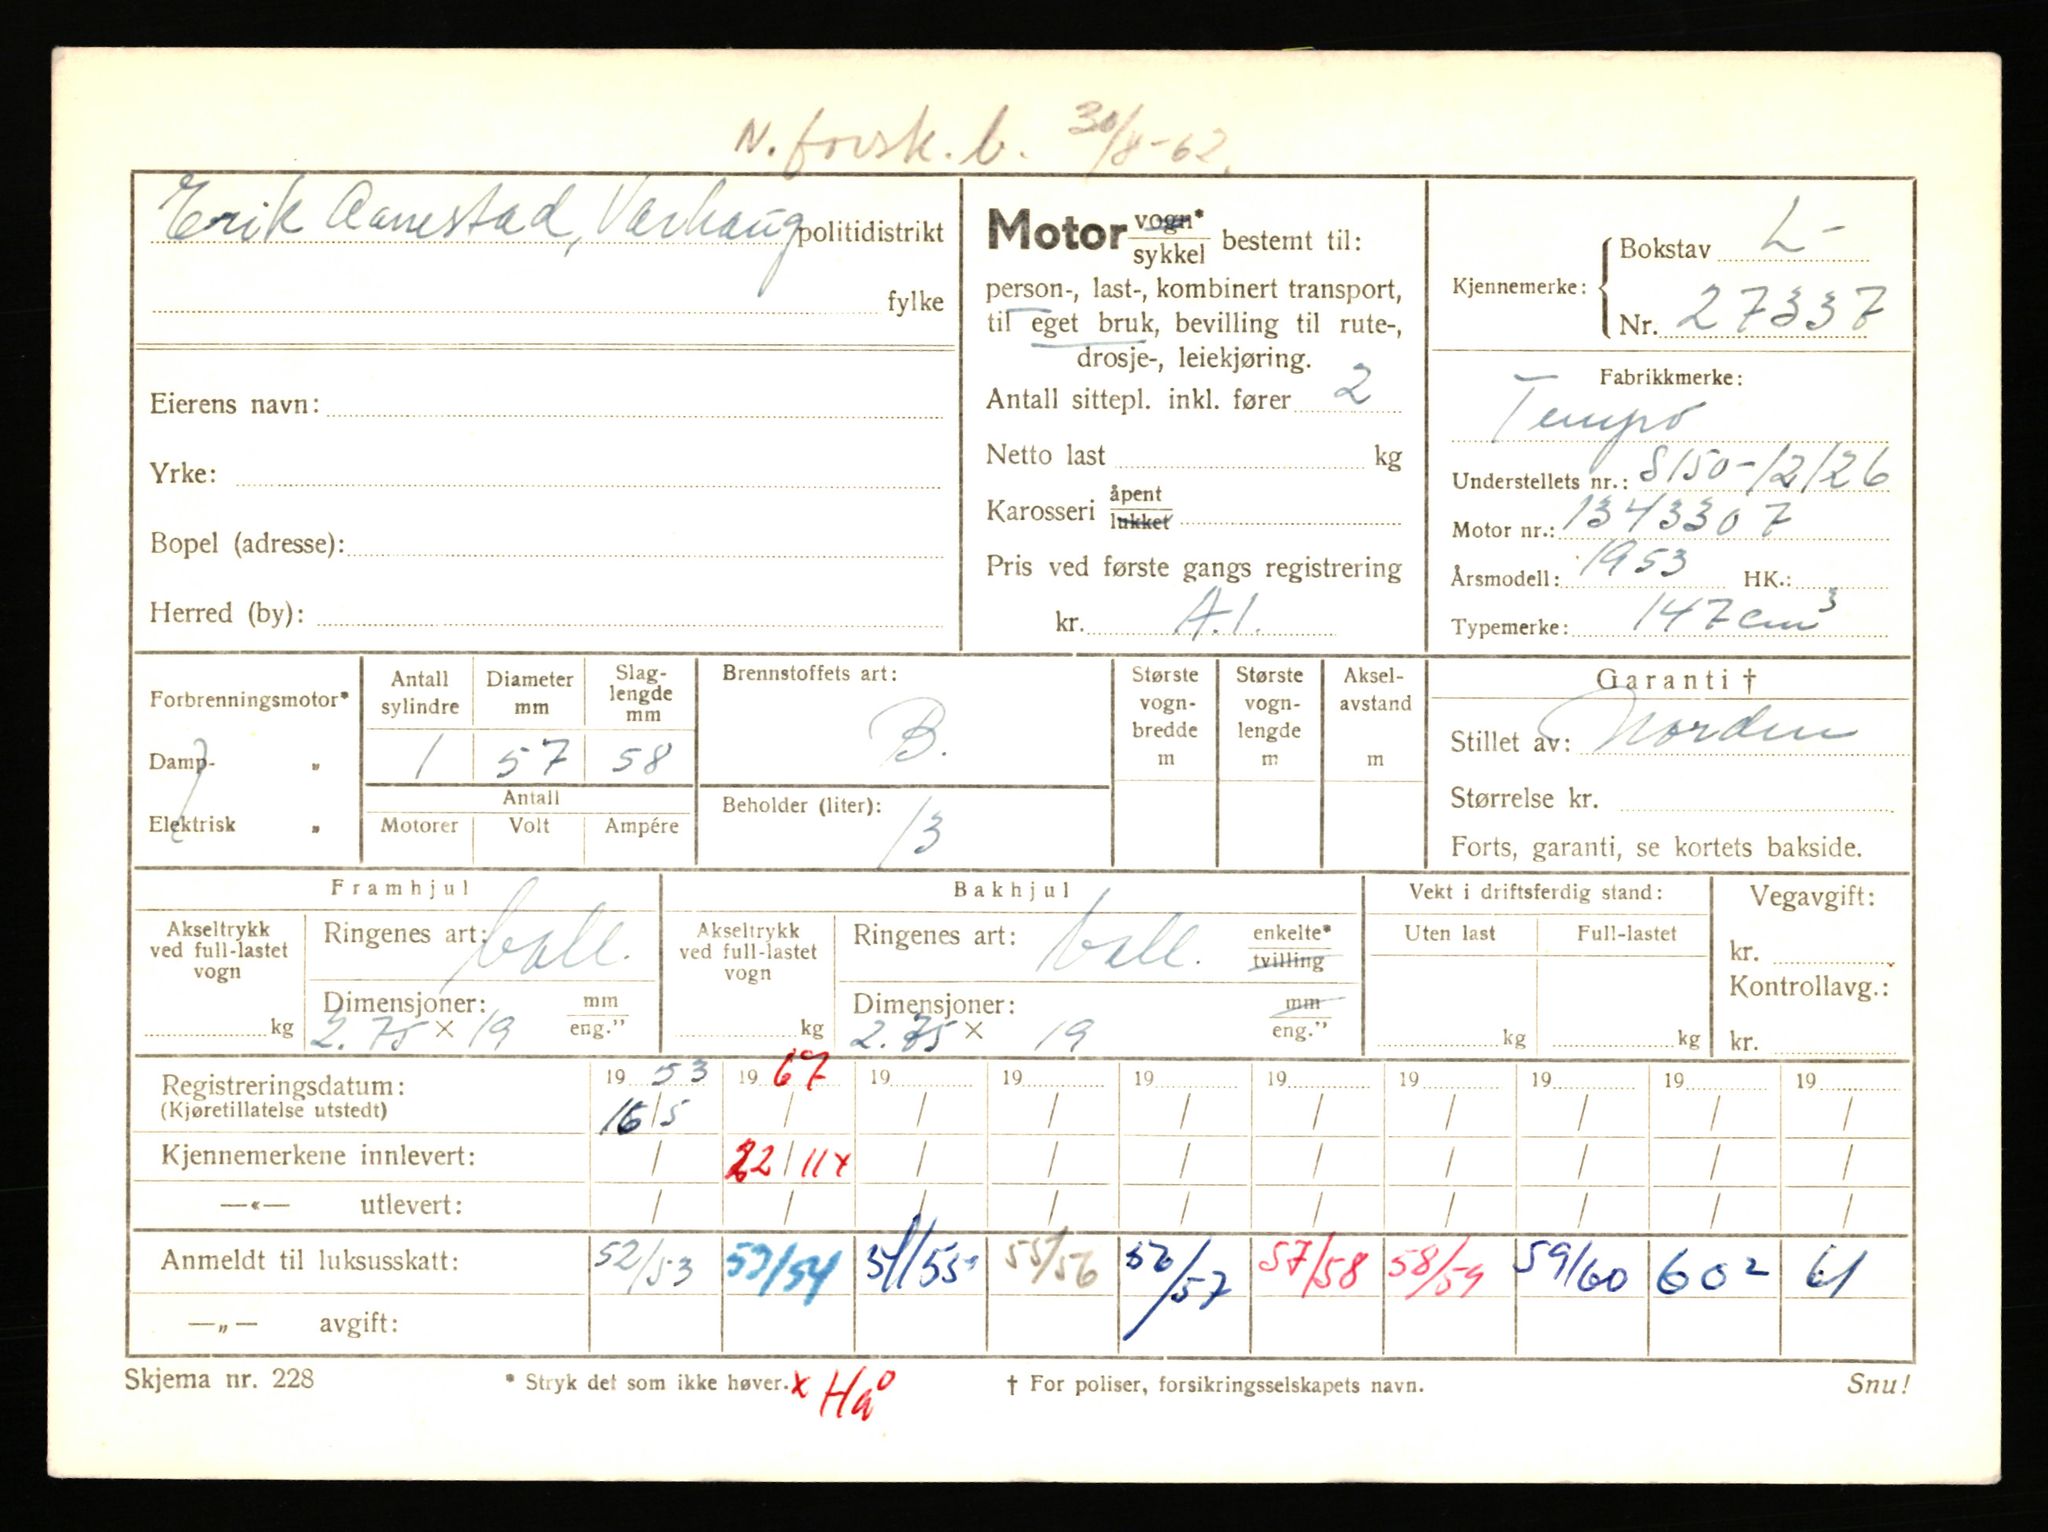 N. forsk. b. 30/8-62.
Erik Aanestad, Varhaug politidistrikt
fylke
Eierens navn:
Yrke:
Bopel (adresse):
Herred (by):
Motor vogn* / sykkel bestemt til:
person-, last-, kombinert transport,
til eget bruk, bevilling til rute-,
drosje-, leiekjøring.
Antall sittepl. inkl. fører 2
Netto last kg
Karosseri åpent / lukket
Pris ved første gangs registrering
kr. A.1.
Kjennemerke: Bokstav L-
Nr. 27337
Fabrikkmerke:
Tempo
Understellets nr.: S150-12126
Motor nr.: 1343307
Årsmodell: 1953 HK.:
Typemerke: 147 cm³
Forbrenningsmotor*
Damp- „
Elektrisk „
Antall sylindre Diameter mm Slag-lengde mm
1 57 58
Antall
Motorer Volt Ampére
Brennstoffets art:
B.
Beholder (liter):
13
Største vogn-bredde m
Største vogn-lengde m
Aksel-avstand m
Garanti †
Stillet av: Norden
Størrelse kr.
Forts, garanti, se kortets bakside.
Framhjul
Akseltrykk ved full-lastet vogn
kg
Ringenes art: ball.
Dimensjoner: mm / eng."
2.75 × 19
Bakhjul
Akseltrykk ved full-lastet vogn
kg
Ringenes art: ball. enkelte* / tvilling
Dimensjoner: mm / eng."
2.75 × 19
Vekt i driftsferdig stand:
Uten last Full-lastet
kg kg
Vegavgift:
kr.
Kontrollavg.:
kr.
Registreringsdatum: 1953 1967 19 19 19 19 19 19 19 19
(Kjøretillatelse utstedt) 16/5 / / / / / / / / /
Kjennemerkene innlevert: / 22/11 x / / / / / / / /
—«— utlevert: / / / / / / / / / /
Anmeldt til luksusskatt: 52/53 53/54 54/55 55/56 56/57 57/58 58/59 59/60 60² 61
—„— avgift:
Skjema nr. 228 * Stryk det som ikke høver. x Hå † For poliser, forsikringsselskapets navn. Snu!